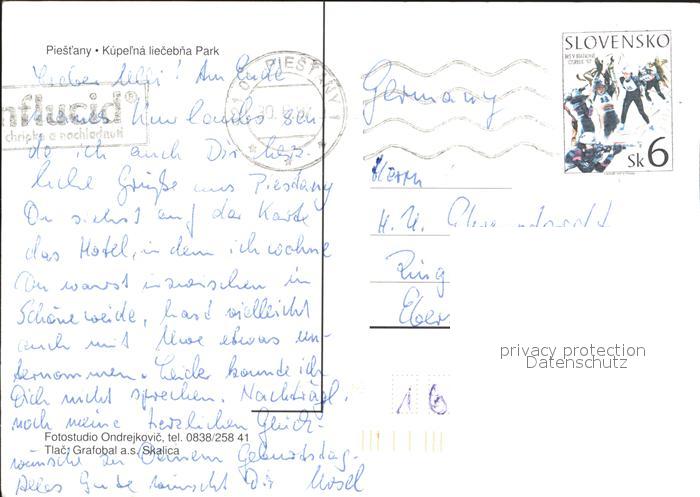 Piešťany • Kúpeľná liečebňa Park
Lieber Ulli! Am Ende
meines Kurlaubes sen-
de ich auch Dir herz-
liche Grüße aus Piestany
Du siehst auf der Karte
das Hotel, in dem ich wohne
Du warst inzwischen in
Schöneweide, hast vielleicht
auch mit Uwe etwas un-
ternommen. Leider konnte ich
Dich nicht sprechen. Nachträgl.
noch meine herzlichen Glück-
wünsche zu Deinem Geburtstag.
Alles Gute wünscht Dir
Fotostudio Ondrejkovič, tel. 0838/258 41
Tlač: Grafobal a.s. Skalica
nflucid®
chrípka a nachladnutí
PIEŠŤANY 1
SLOVENSKO
Sk 6
Germany
Herrn
H. U.
Ring
Eber
16
privacy protection
Datenschutz